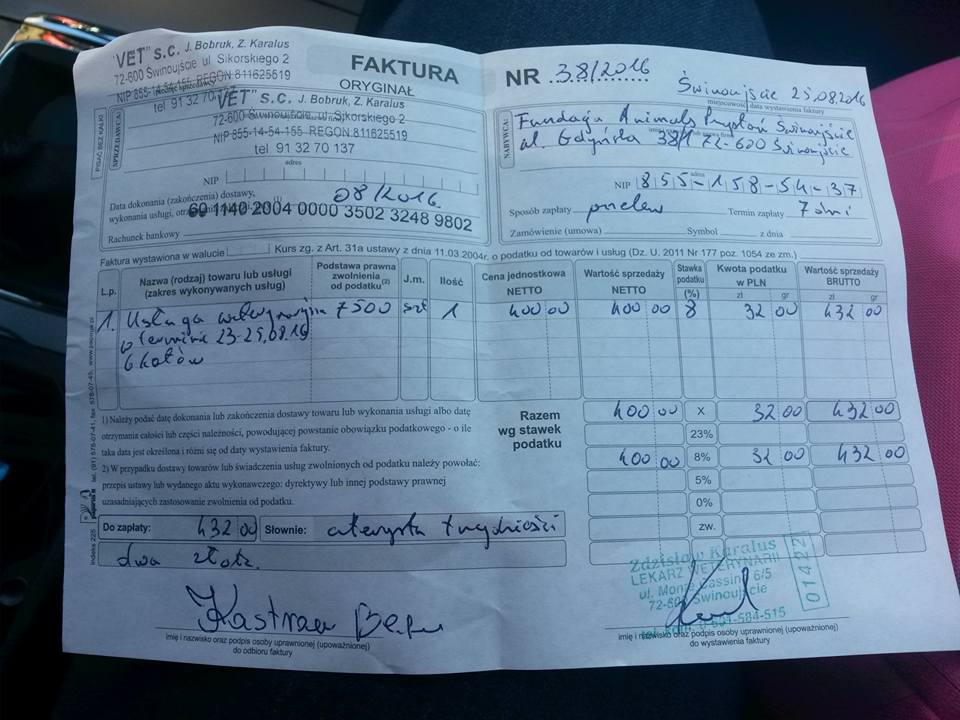 "VET" s.c. J. Bobruk, Z. Karalus
72-600 Świnoujście ul Sikorskiego 2
NIP 855-14-54-155 REGON 811625519
tel 91 32 70 137
FAKTURA
ORYGINAŁ
NR 38/2016
Świnoujście 25.08.2016
miejscowość, data wystawienia faktury
PISAĆ BEZ KALKI
SPRZEDAWCA:
"VET" s.c. J. Bobruk, Z. Karalus
72-600 Świnoujście, ul. Sikorskiego 2
NIP 855-14-54-155 REGON 811625519
tel 91 32 70 137
adres
NIP
Data dokonania (zakończenia) dostawy,
wykonania usługi, 08/2016.
69 1140 2004 0000 3502 3248 9802
Rachunek bankowy
NABYWCA:
Fundacja Animals Świnoujście
ul. Gdyńska 38/1 72-600 Świnoujście
adres
NIP 855-158-54-37
Sposób zapłaty przelew Termin zapłaty 7 dni
Zamówienie (umowa) Symbol z dnia
Faktura wystawiona w walucie Kurs zg. z Art. 31a ustawy z dnia 11.03.2004r. o podatku od towarów i usług (Dz. U. 2011 Nr 177 poz. 1054 ze zm.)
L.p. Nazwa (rodzaj) towaru lub usługi (zakres wykonywanych usług) Podstawa prawna zwolnienia od podatku(2) J.m. Ilość Cena jednostkowa NETTO Wartość sprzedaży NETTO Stawka podatku (%) Kwota podatku w PLN Wartość sprzedaży BRUTTO
zł gr zł gr
1. Usługa weterynaryjna 7500 szt 1 400 00 400 00 8 32 00 432 00
w terminie 23-25.08.16
6 kotów
Razem
wg stawek
podatku
400 00 X 32 00 432 00
23%
400 00 8% 32 00 432 00
5%
0%
zw.
1) Należy podać datę dokonania lub zakończenia dostawy towaru lub wykonania usługi albo datę
otrzymania całości lub części należności, powodującej powstanie obowiązku podatkowego - o ile
taka data jest określona i różni się od daty wystawienia faktury.
2) W przypadku dostawy towarów lub świadczenia usług zwolnionych od podatku należy powołać:
przepis ustawy lub wydanego aktu wykonawczego: dyrektywy lub innej podstawy prawnej
uzasadniających zastosowanie zwolnienia od podatku.
indeks 225
tel. (91) 578-07-41, fax 578-07-45, www.papirus.pl
Do zapłaty: 432 00 Słownie: czterysta trzydzieści
dwa złote.
imię i nazwisko oraz podpis osoby uprawnionej (upoważnionej)
do odbioru faktury
Zdzisław Karalus
LEKARZ WETERYNARII
ul. Monte Cassino 6/5
72-600 Świnoujście
01422
imię i nazwisko oraz podpis osoby uprawnionej (upoważnionej)
do wystawienia faktury